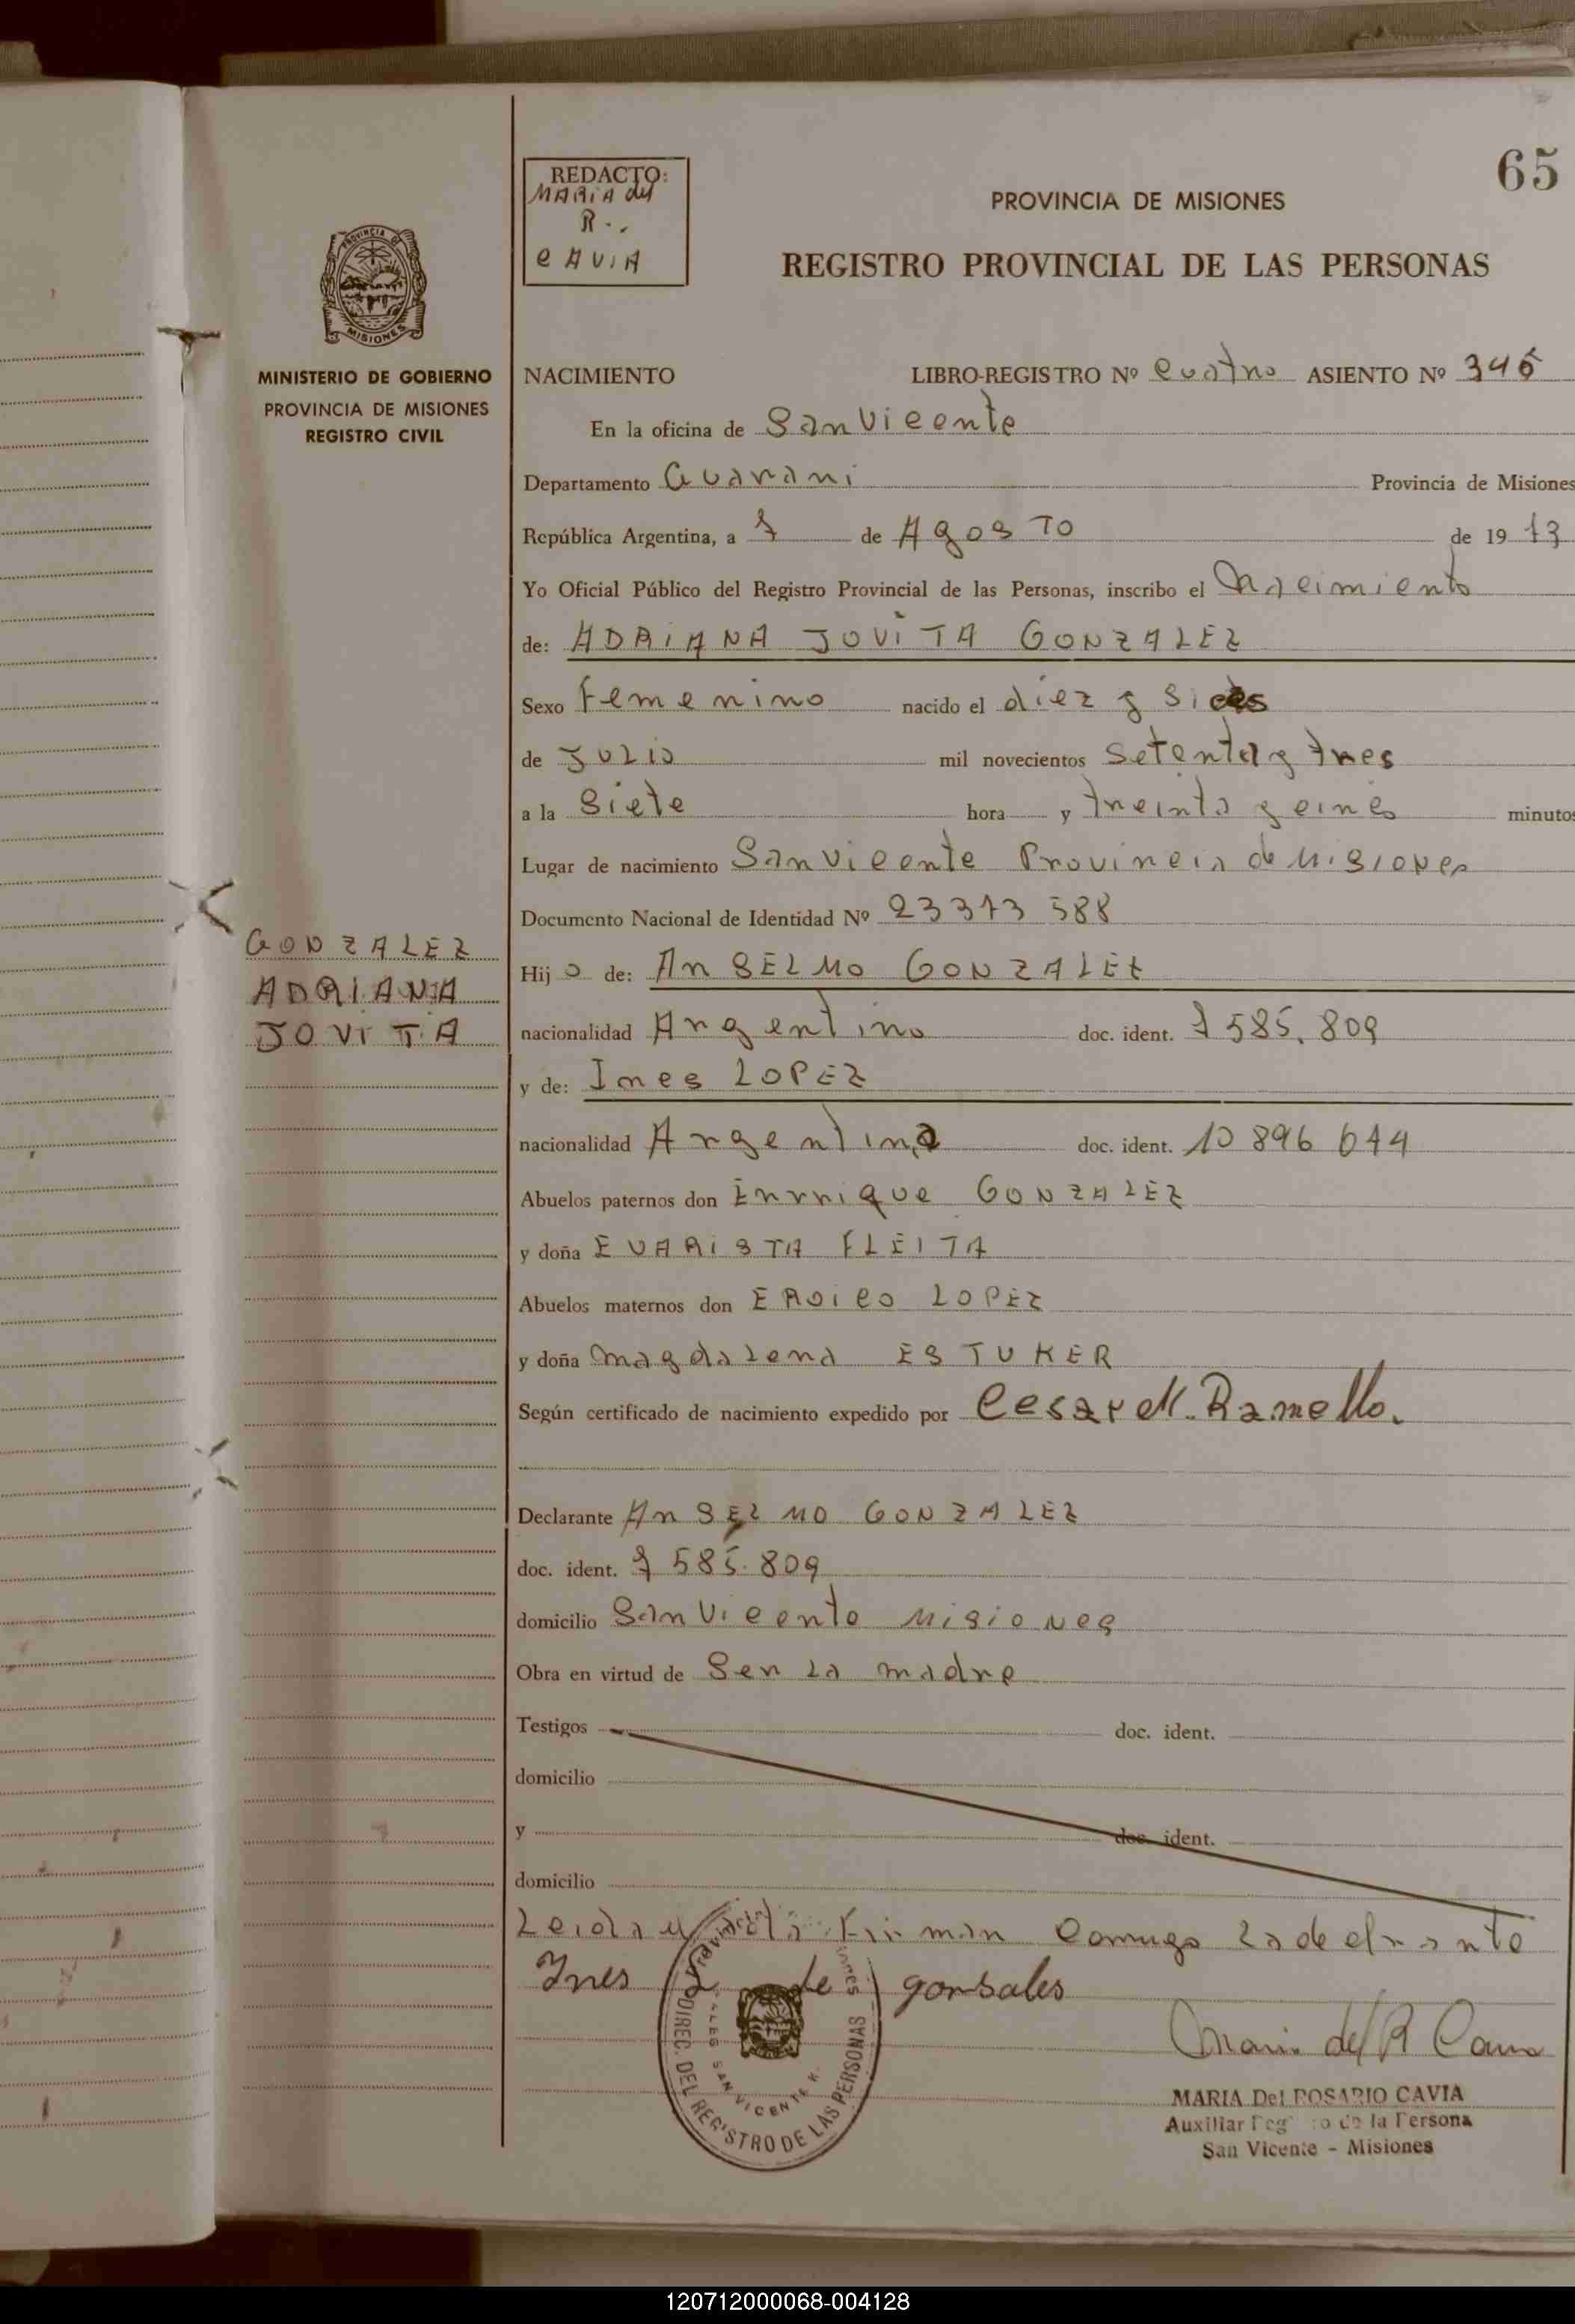 65
REDACTO:
MARIA del
R..
CAVIA
PROVINCIA DE MISIONES
REGISTRO PROVINCIAL DE LAS PERSONAS
PROVINCIA DE
MISIONES
MINISTERIO DE GOBIERNO
PROVINCIA DE MISIONES
REGISTRO CIVIL
NACIMIENTO LIBRO-REGISTRO Nº cuatro ASIENTO Nº 345
En la oficina de San Vicente
Departamento Guarani Provincia de Misiones
República Argentina, a 7 de Agosto de 19 73
Yo Oficial Público del Registro Provincial de las Personas, inscribo el Nacimiento
de: ADRIANA JOVITA GONZALEZ
Sexo femenino nacido el diez y
de Julio mil novecientos setenta y tres
a la Siete hora y treinta y cinco minutos
Lugar de nacimiento San Vicente Provincia de Misiones
Documento Nacional de Identidad Nº 23373 588
GONZALEZ
ADRIANA
JOVITA
Hij o de: AnSELMO GONZALEZ
nacionalidad Argentino doc. ident. 7 585. 809
y de: Ines LOPEZ
nacionalidad Argentina doc. ident. 10 896 644
Abuelos paternos don Enrrique GONZALEZ
y doña EVARISTA FLEITA
Abuelos maternos don LOPEZ
y doña Magdalena ESTUKER
Según certificado de nacimiento expedido por Cesar M. Ramello.
Declarante AnSELMO GONZALEZ
doc. ident. 7 585. 809
domicilio San Vicente Misiones
Obra en virtud de Ser la madre
Testigos doc. ident.
domicilio
y doc. ident.
domicilio
Leida el acta Firman Comigo la declarante
Ines L de gonsales
Maria del R Cavia
MARIA Del ROSARIO CAVIA
Auxiliar Registro de la Persona
San Vicente - Misiones
DIREC. DEL REGISTRO DE LAS PERSONAS
SAN VICENTE
120712000068-004128